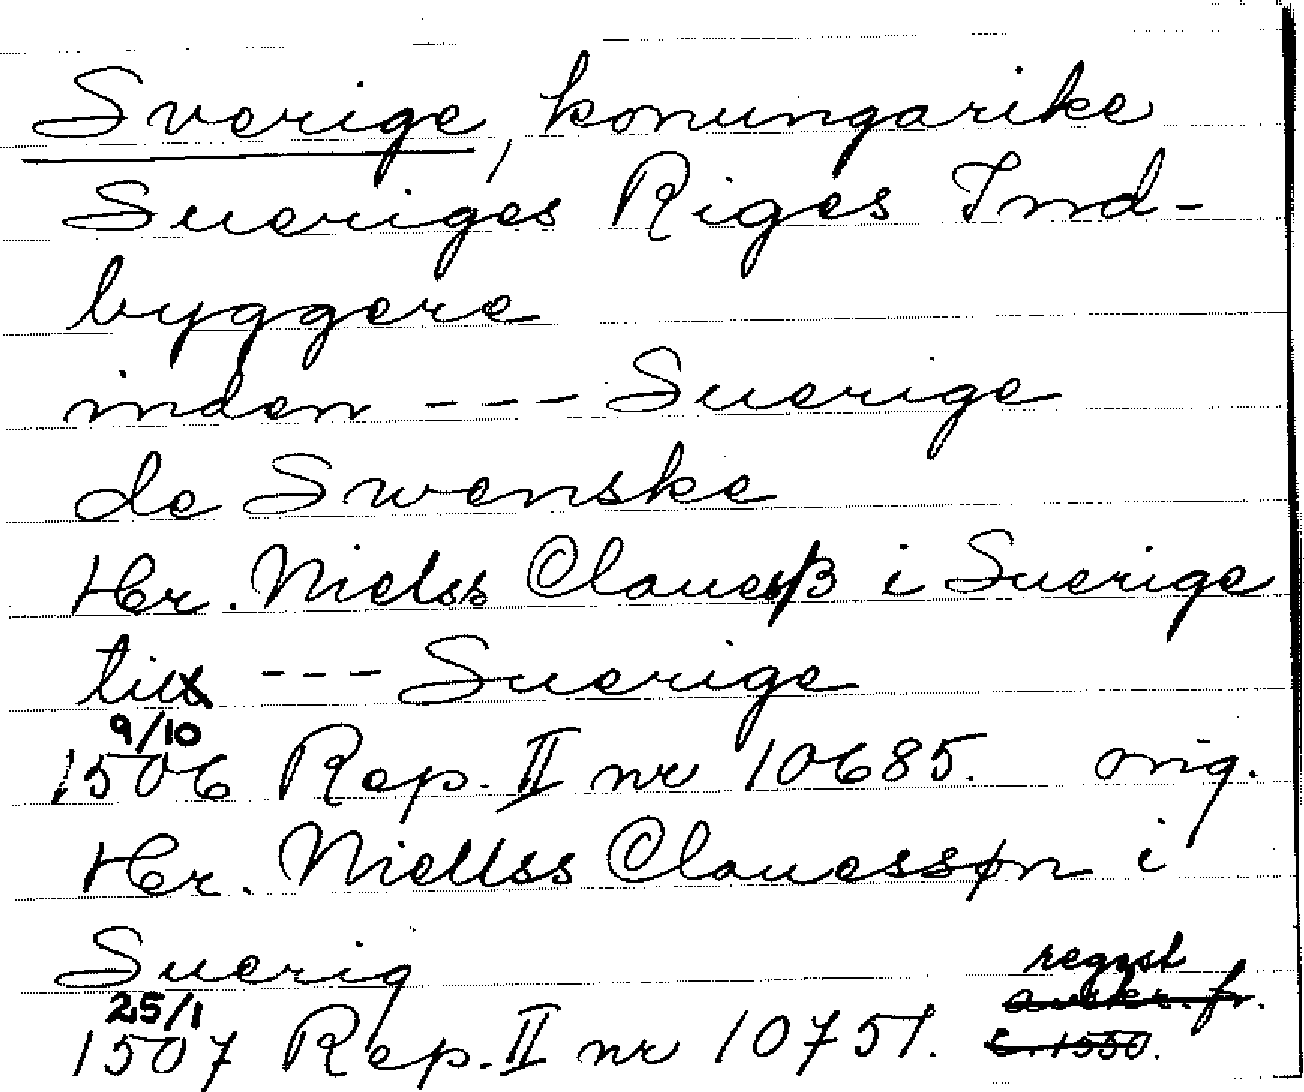 Sverige, konungarike
Sueriges Riges Ind-
byggere
inden --- Suerige
de Swenske
Her. Nielss Clauesß i Suerige
till --- Suerige
9/10
1506 Rep. II nr 10685. orig.
Her. Niellss Clauessøn i
Suerig
regest
avskr. fr.
25/1
1507 Rep. II nr 10751. c. 1550.